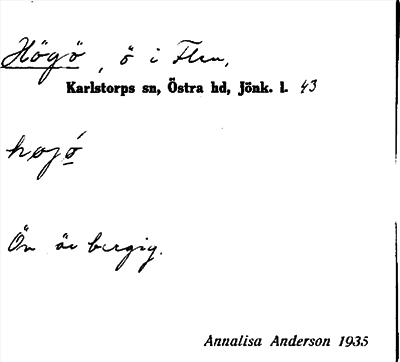 Högö, ö i Flen,
Karlstorps sn, Östra hd, Jönk. l. 43
Ön är bergig.
Annalisa Anderson 1935